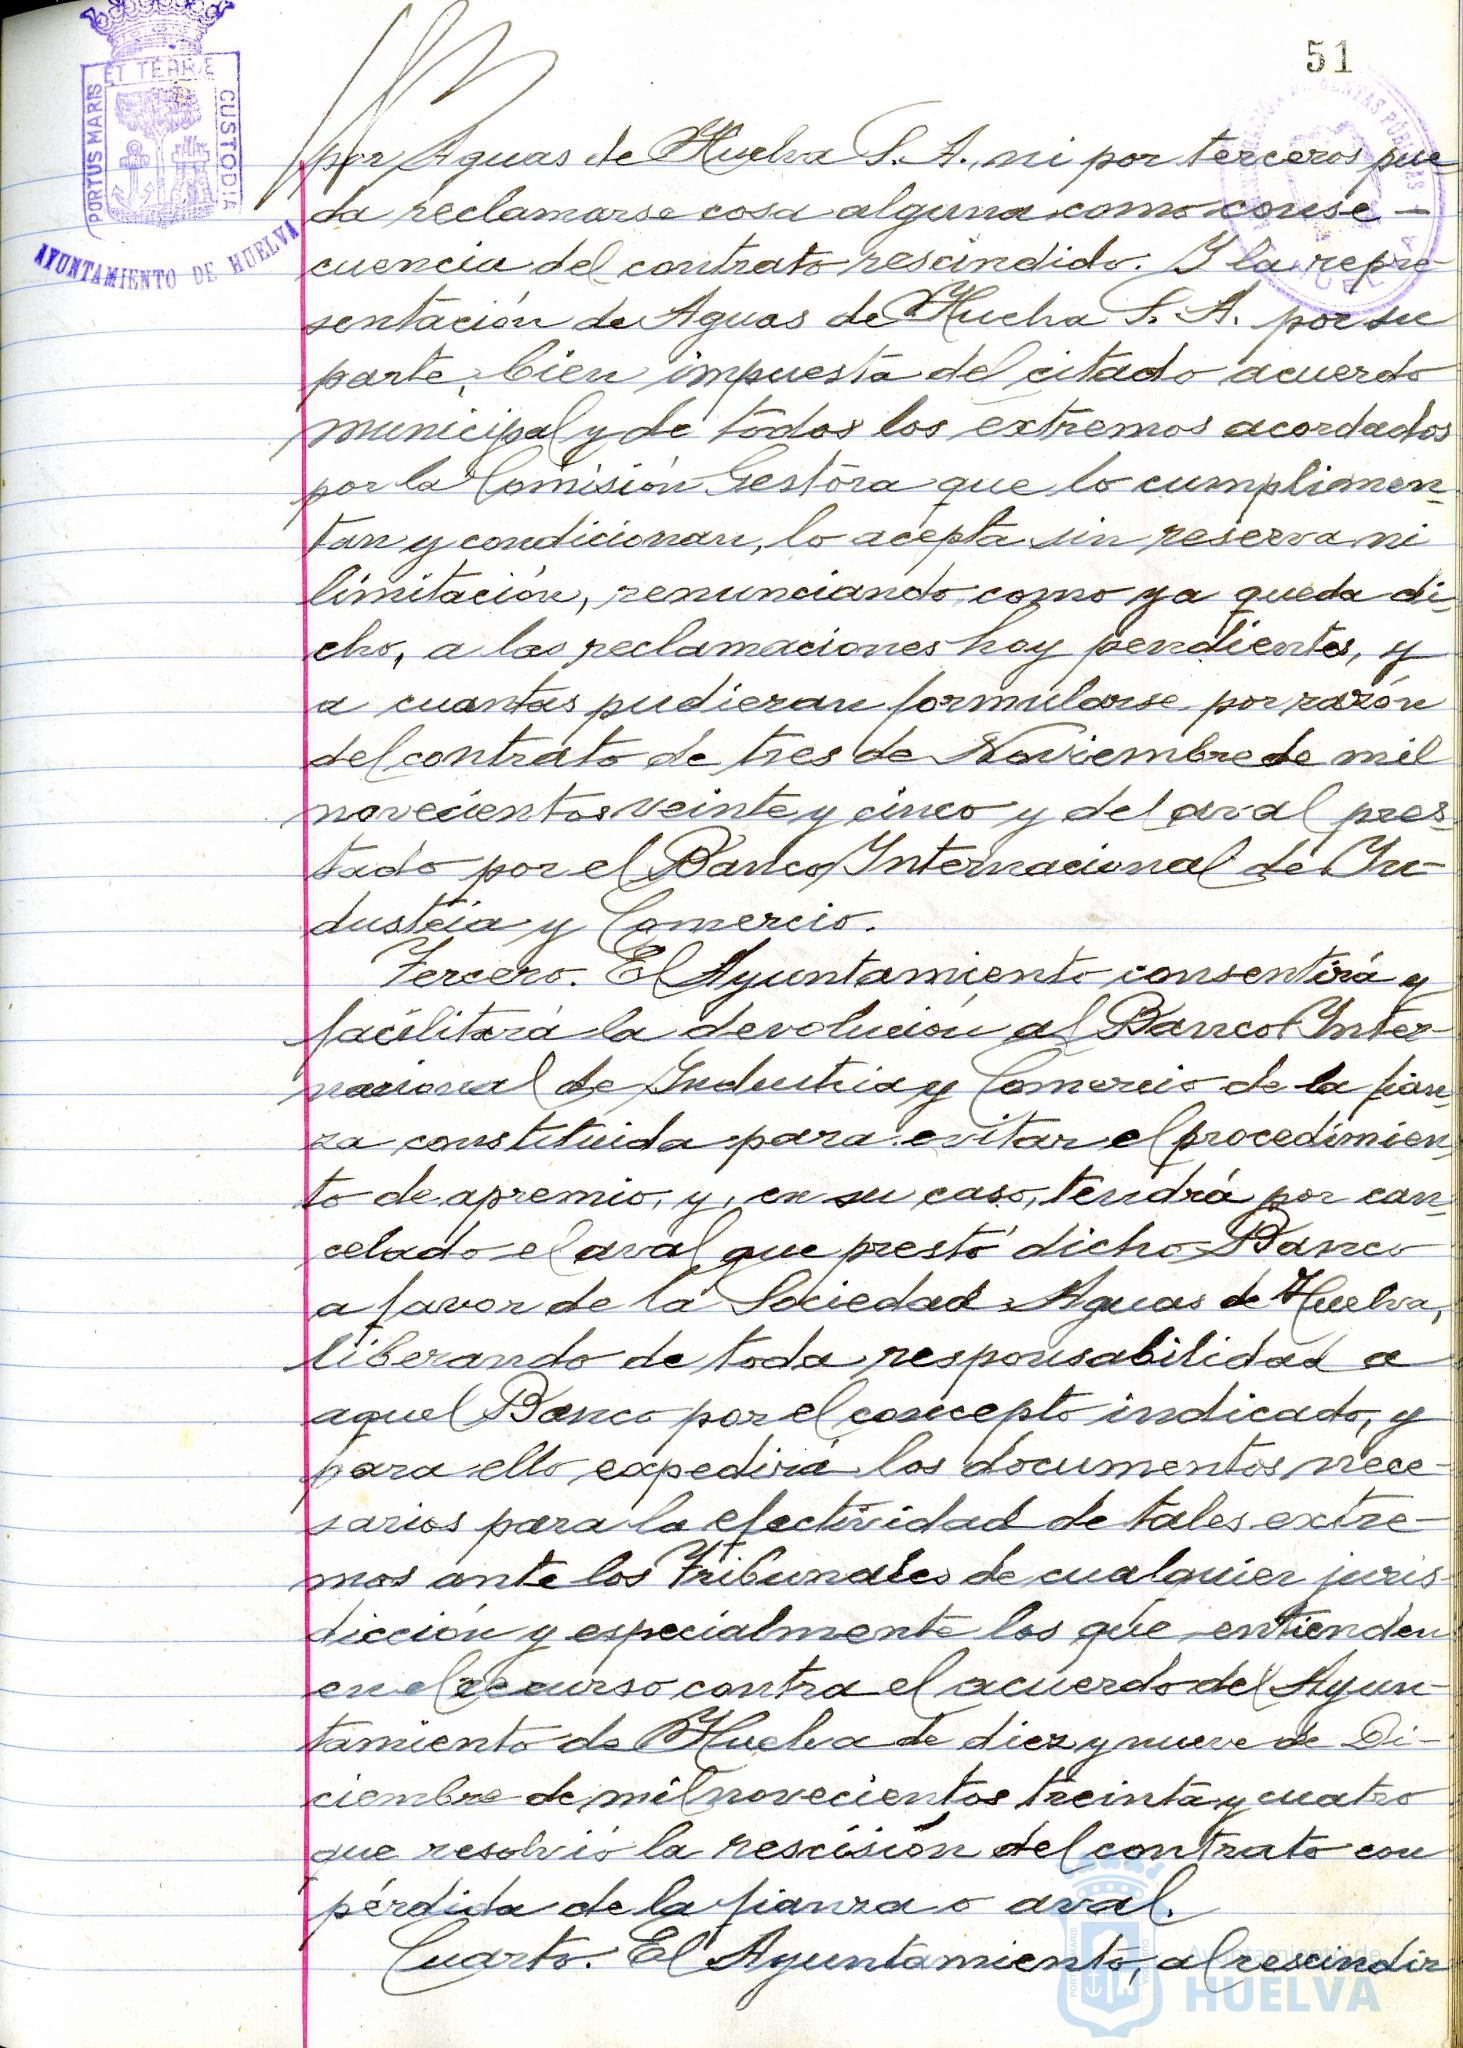 51
PORTUS MARIS ET TERRÆ CUSTODIA
AYUNTAMIENTO DE HUELVA
por Aguas de Huelva S. A., ni por terceros pue-
da reclamarse cosa alguna como conse-
cuencia del contrato rescindido. Y la repre-
sentación de Aguas de Huelva S. A. por su
parte, bien impuesta del citado acuerdo
municipal y de todos los extremos acordados
por la Comisión Gestora que lo cumplimen-
tan y condicionan, lo acepta sin reserva ni
limitación, renunciando como ya queda di-
cho, a las reclamaciones hoy pendientes, y
a cuantas pudieran formularse por razón
del contrato de tres de Noviembre de mil
novecientos veinte y cinco y del aval pres-
tado por el Banco Internacional de In-
dustria y Comercio.
Tercero. El Ayuntamiento consentirá y
facilitará la devolución al Banco Inter-
nacional de Industria y Comercio de la fian-
za constituida para evitar el procedimien-
to de apremio, y, en su caso, tendrá por can-
celado el aval que prestó dicho Banco
a favor de la Sociedad Aguas de Huelva,
liberando de toda responsabilidad a
aquel Banco por el concepto indicado, y
para ello expedirá los documentos nece-
sarios para la efectividad de tales extre-
mos ante los Tribunales de cualquier juris-
dicción y especialmente los que entienden
en el recurso contra el acuerdo del Ayun-
tamiento de Huelva de diez y nueve de Di-
ciembre de mil novecientos treinta y cuatro
que resolvió la rescisión del contrato con
pérdida de la fianza o aval.
Cuarto. El Ayuntamiento, al rescindir
Ayuntamiento de
HUELVA